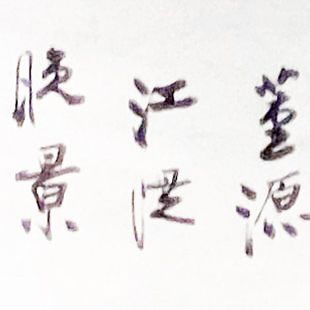 董源
江堤
晚景